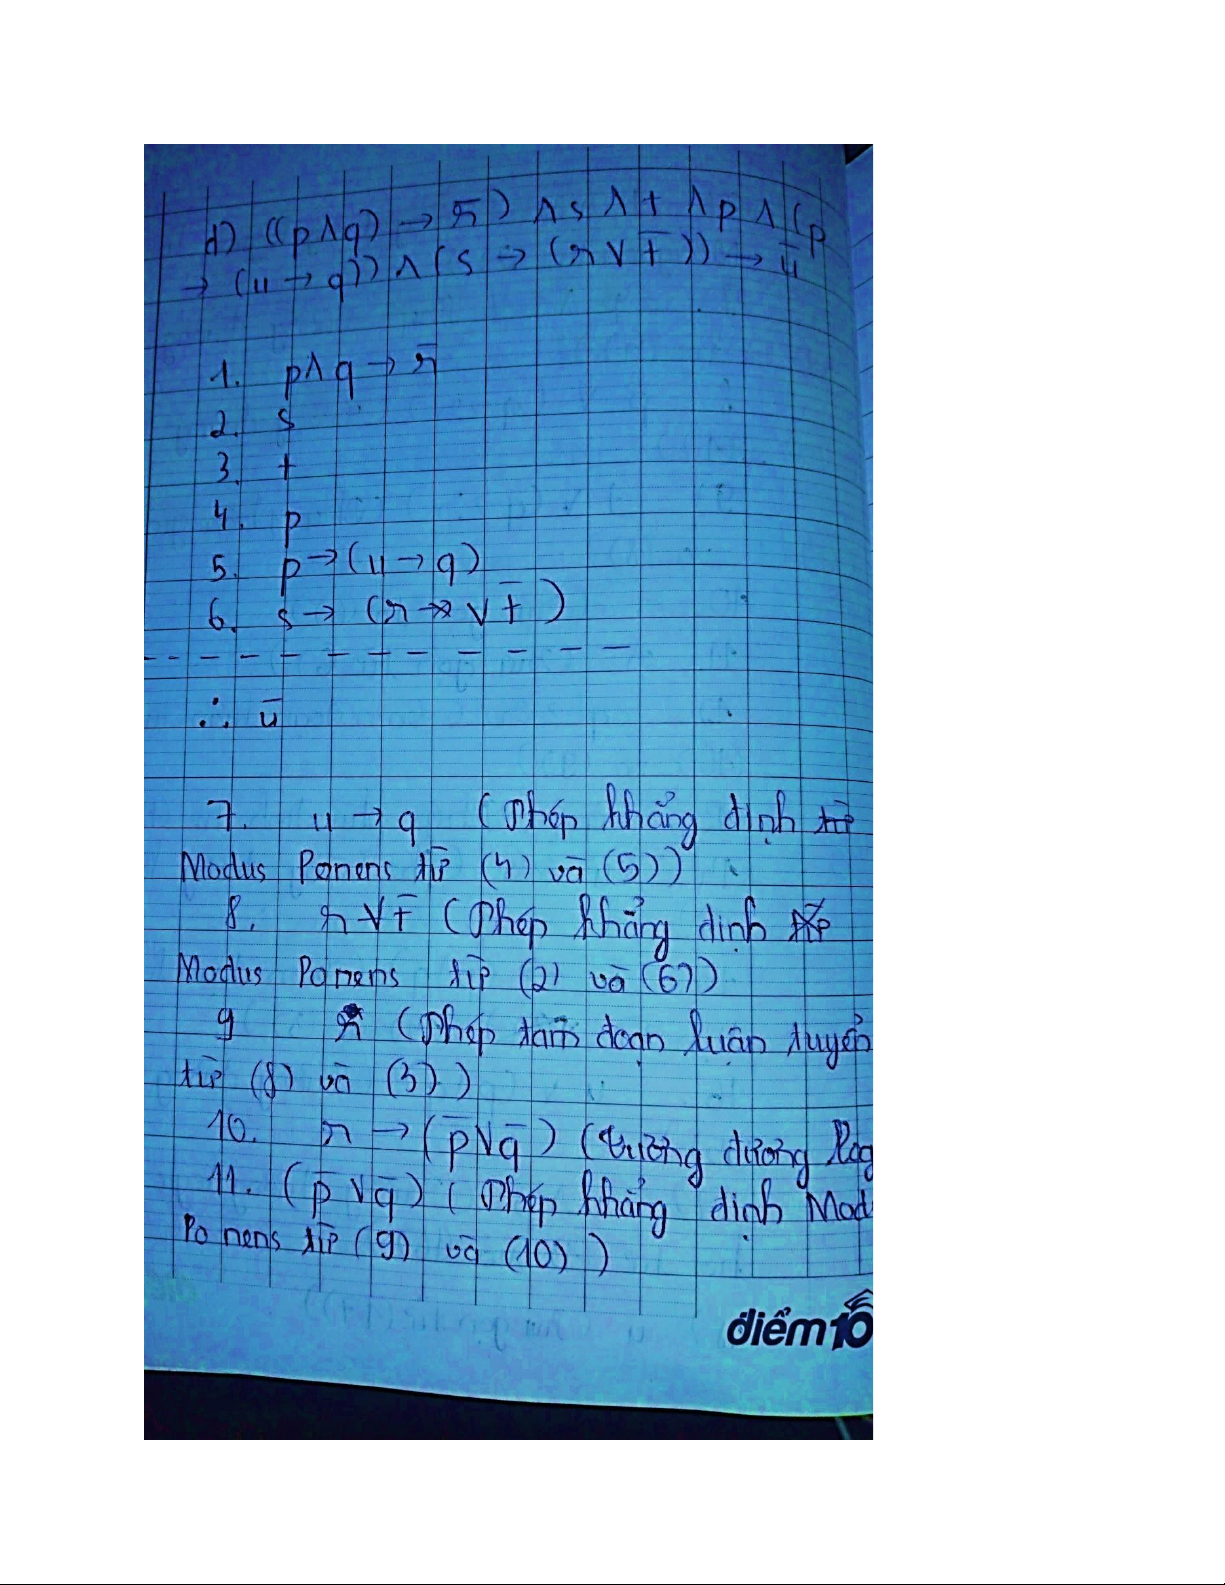 d) ((p∧q) → r̄) ∧ s ∧ t ∧ p ∧ (p
→ (u → q)) ∧ (s → (r ∨ t̄)) → ū
1. p∧q → r̄
2. s
3. t
4. p
5. p → (u → q)
6. s → (r ∨ t̄)
∴ ū
7. u → q (Phép khẳng định
Modus Ponens từ (4) và (5))
8. r ∨ t̄ (Phép khẳng định
Modus Ponens từ (2) và (6))
9 r (Phép tam đoạn luận tuyển
từ (8) và (3))
10. r → (p̄ ∨ q̄) (tương đương
11. (p̄ ∨ q̄) (Phép khẳng định Mod
Ponens từ (9) và (10))
điểm10